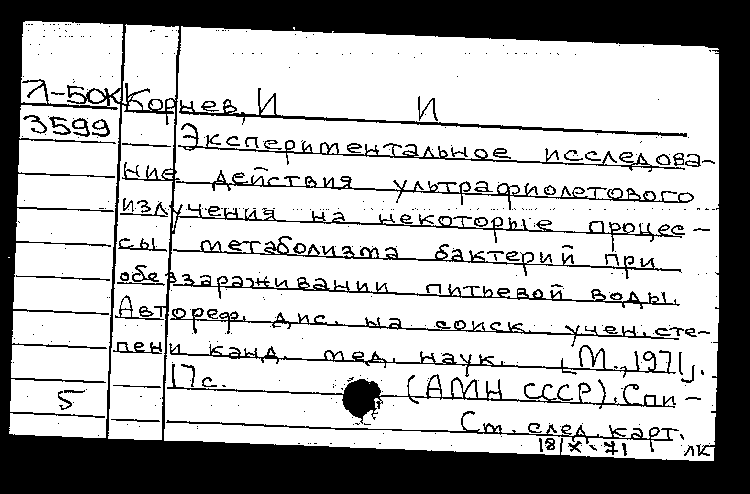 Л-50К Корнев, И И
3599 Экспериментальное исследова-
ние действия ультрафиолетового
излучения на некоторые процес-
сы метаболизма бактерий при
обеззараживании питьевой воды.
Автореф. дис. на соиск. учен. сте-
пени канд. мед. наук. [М., 1971].
17 с. (АМН СССР). Спи-
5 Ст. след. карт.
18/X-71 ЛК